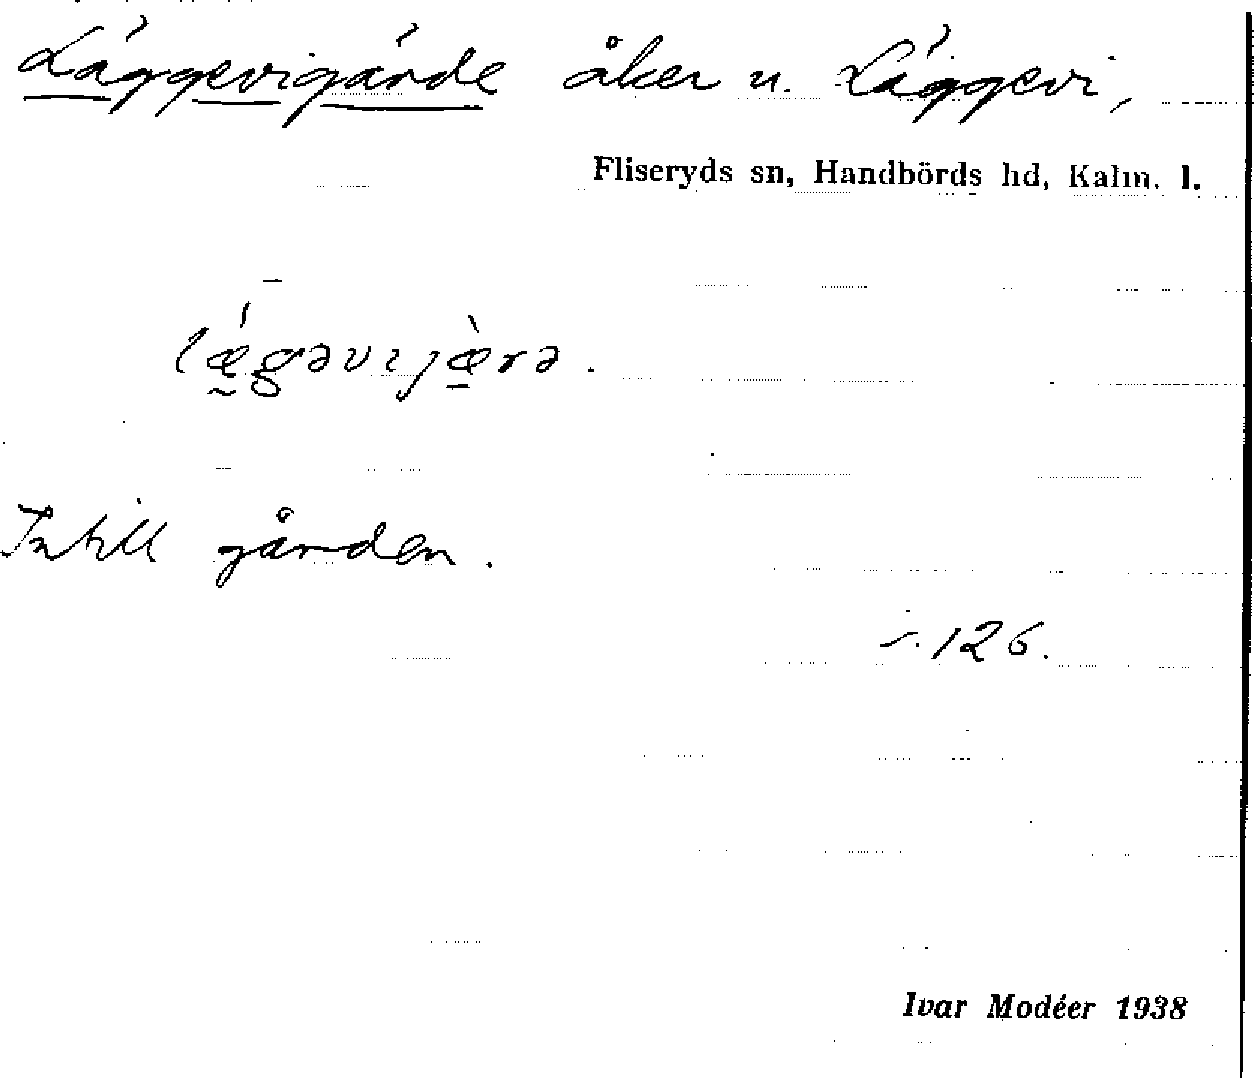 Läggevigärde åker u. Läggevi,
Fliseryds sn, Handbörds hd, Kalm. l.
lǽgəvıȷæ̀rə.
Intill gården.
s. 126.
Ivar Modéer 1938